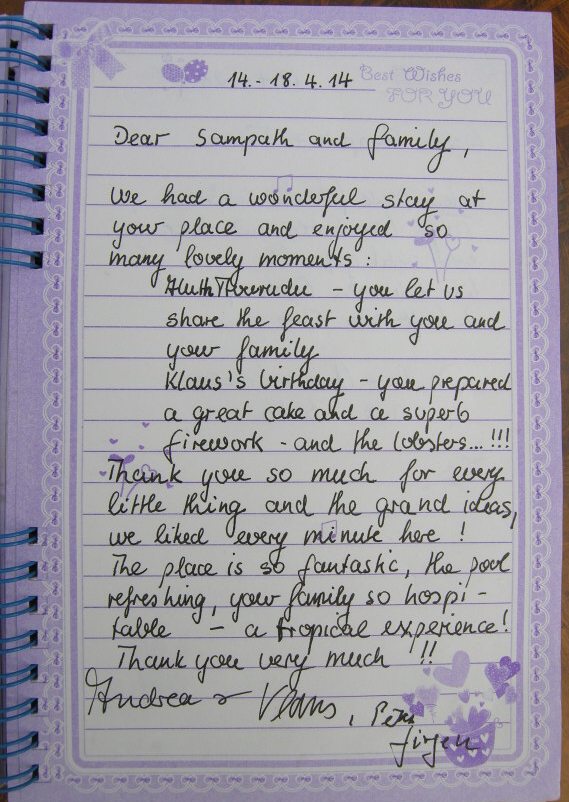 14.-18.4.14 Best Wishes
FOR YOU
Dear Sampath and family,
We had a wonderful stay at
your place and enjoyed so
many lovely moments:
- you let us
share the feast with you and
your family
Klaus's birthday - you prepared
a great cake and a superb
firework - and the lobsters...!!!
Thank you so much for every
little thing and the grand ideas,
we liked every minute here!
The place is so fantastic, the pool
refreshing, your family so hospi-
table - a tropical experience!
Thank you very much !!
Andrea & Klaus,